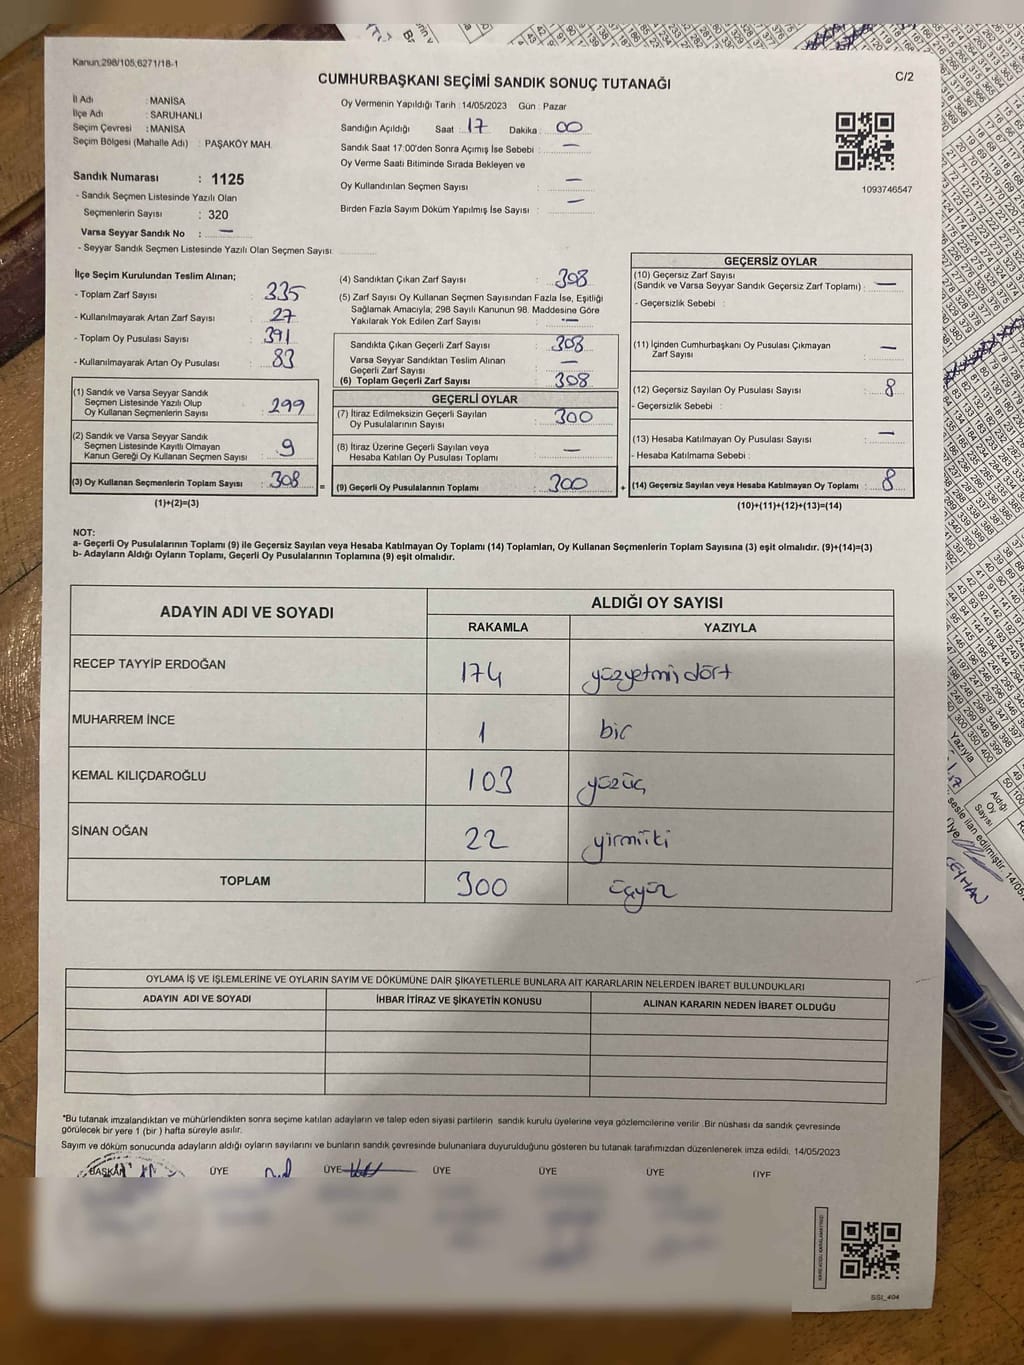 Kanun;298/105;6271/18-1
CUMHURBAŞKANI SEÇİMİ SANDIK SONUÇ TUTANAĞI
C/2
İl Adı : MANİSA
İlçe Adı : SARUHANLI
Seçim Çevresi : MANİSA
Seçim Bölgesi (Mahalle Adı) : PAŞAKÖY MAH.
Sandık Numarası : 1125
- Sandık Seçmen Listesinde Yazılı Olan
Seçmenlerin Sayısı : 320
Varsa Seyyar Sandık No : —
- Seyyar Sandık Seçmen Listesinde Yazılı Olan Seçmen Sayısı:
Oy Vermenin Yapıldığı Tarih : 14/05/2023 Gün : Pazar
Sandığın Açıldığı Saat : 17 Dakika : 00
Sandık Saat 17:00'den Sonra Açımış İse Sebebi : —
Oy Verme Saati Bitiminde Sırada Bekleyen ve
Oy Kullandırılan Seçmen Sayısı : —
Birden Fazla Sayım Döküm Yapılmış İse Sayısı : —
1093746547
İlçe Seçim Kurulundan Teslim Alınan;
- Toplam Zarf Sayısı : 335
- Kullanılmayarak Artan Zarf Sayısı : 27
- Toplam Oy Pusulası Sayısı : 391
- Kullanılmayarak Artan Oy Pusulası : 83
(1) Sandık ve Varsa Seyyar Sandık
Seçmen Listesinde Yazılı Olup
Oy Kullanan Seçmenlerin Sayısı : 299
(2) Sandık ve Varsa Seyyar Sandık
Seçmen Listesinde Kayıtlı Olmayan
Kanun Gereği Oy Kullanan Seçmen Sayısı : 9
(3) Oy Kullanan Seçmenlerin Toplam Sayısı : 308 =
(1)+(2)=(3)
(4) Sandıktan Çıkan Zarf Sayısı : 308
(5) Zarf Sayısı Oy Kullanan Seçmen Sayısından Fazla İse, Eşitliği
Sağlamak Amacıyla; 298 Sayılı Kanunun 98. Maddesine Göre
Yakılarak Yok Edilen Zarf Sayısı : —
Sandıkta Çıkan Geçerli Zarf Sayısı : 308
Varsa Seyyar Sandıktan Teslim Alınan
Geçerli Zarf Sayısı : —
(6) Toplam Geçerli Zarf Sayısı : 308
GEÇERLİ OYLAR
(7) İtiraz Edilmeksizin Geçerli Sayılan
Oy Pusulalarının Sayısı : 300
(8) İtiraz Üzerine Geçerli Sayılan veya
Hesaba Katılan Oy Pusulası Toplamı : —
(9) Geçerli Oy Pusulalarının Toplamı : 300 +
GEÇERSİZ OYLAR
(10) Geçersiz Zarf Sayısı
(Sandık ve Varsa Seyyar Sandık Geçersiz Zarf Toplamı) : —
- Geçersizlik Sebebi :
(11) İçinden Cumhurbaşkanı Oy Pusulası Çıkmayan
Zarf Sayısı : —
(12) Geçersiz Sayılan Oy Pusulası Sayısı : 8
- Geçersizlik Sebebi :
(13) Hesaba Katılmayan Oy Pusulası Sayısı : —
- Hesaba Katılmama Sebebi :
(14) Geçersiz Sayılan veya Hesaba Katılmayan Oy Toplamı : 8
(10)+(11)+(12)+(13)=(14)
NOT:
a- Geçerli Oy Pusulalarının Toplamı (9) ile Geçersiz Sayılan veya Hesaba Katılmayan Oy Toplamı (14) Toplamları, Oy Kullanan Seçmenlerin Toplam Sayısına (3) eşit olmalıdır. (9)+(14)=(3)
b- Adayların Aldığı Oyların Toplamı, Geçerli Oy Pusulalarının Toplamına (9) eşit olmalıdır.
ADAYIN ADI VE SOYADI
ALDIĞI OY SAYISI
RAKAMLA YAZIYLA
RECEP TAYYİP ERDOĞAN 174 yüzyetmişdört
MUHARREM İNCE 1 bir
KEMAL KILIÇDAROĞLU 103 yüzüç
SİNAN OĞAN 22 yirmiiki
TOPLAM 300 üçyüz
OYLAMA İŞ VE İŞLEMLERİNE VE OYLARIN SAYIM VE DÖKÜMÜNE DAİR ŞİKAYETLERLE BUNLARA AİT KARARLARIN NELERDEN İBARET BULUNDUKLARI
ADAYIN ADI VE SOYADI İHBAR İTİRAZ VE ŞİKAYETİN KONUSU ALINAN KARARIN NEDEN İBARET OLDUĞU
*Bu tutanak imzalandıktan ve mühürlendikten sonra seçime katılan adayların ve talep eden siyasi partilerin sandık kurulu üyelerine veya gözlemcilerine verilir .Bir nüshası da sandık çevresinde
görülecek bir yere 1 (bir ) hafta süreyle asılır.
Sayım ve döküm sonucunda adayların aldığı oyların sayılarını ve bunların sandık çevresinde bulunanlara duyurulduğunu gösteren bu tutanak tarafımızdan düzenlenerek imza edildi. 14/05/2023
BAŞKAN ÜYE ÜYE ÜYE ÜYE ÜYE ÜYE
SSI_404
Yazıyla
Aldığı
Oy
Sayısı
sesle ilan edilmiştir. 14/05/
Üye
CEYHAN